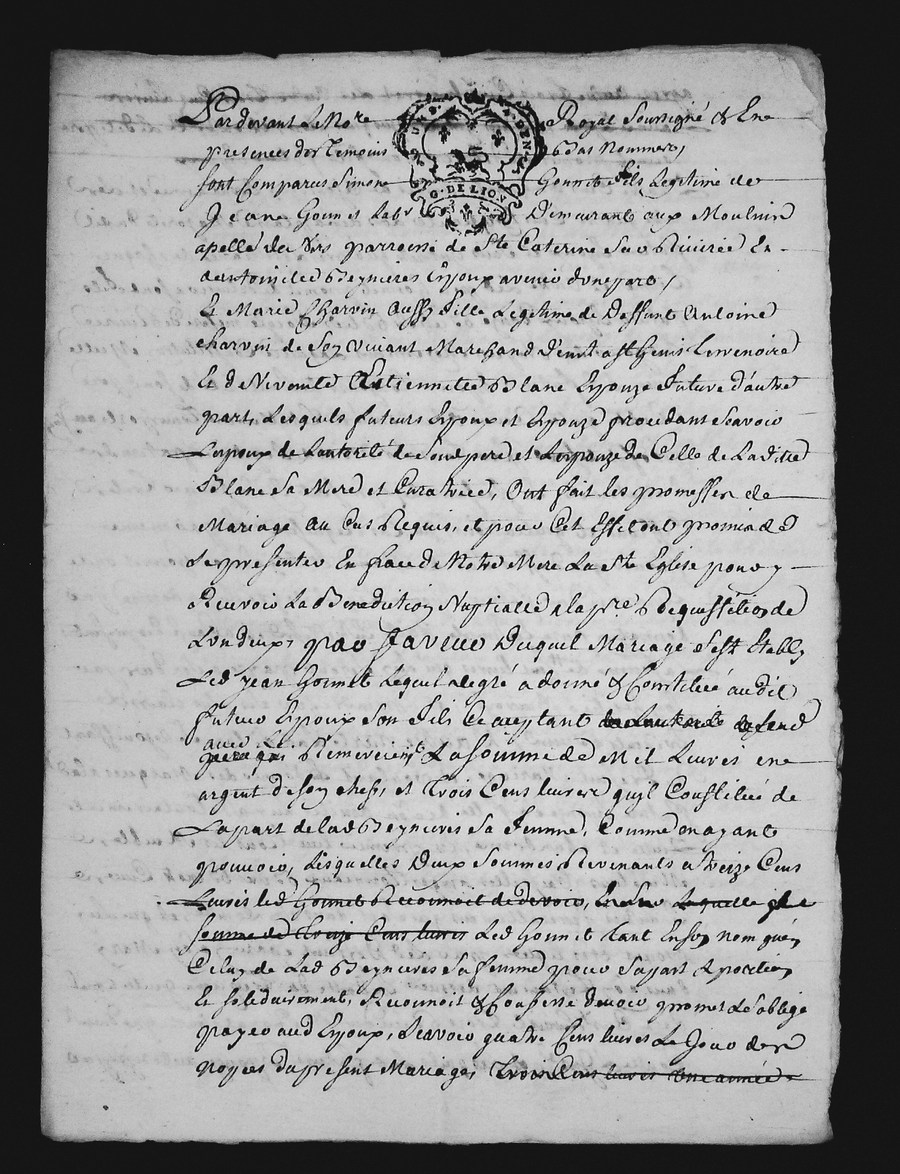 Pardevant Le No.re Royal Soussigné & En
presences des Temoins bas Nommes,
G. DE LION
sont Comparus Simon Gounet fils Legitime de
Jean Gounet Lab.r Demeurant aux Moulin
apellé du paroisse de Ste Caterine Sur Riviere Et
de Beynieres Epoux avenir d'une part,
Et Marie Charvin Aussy Fille Legitime de Deffunt Antoine
Charvin de Son Vivant Marchand
Et de Estiennette Blanc Epouze future d'autre
part, Lesquels futurs Epoux et Epouze procedant Scavoir
L'epoux de L'autorité de Sond pere et L'epouze de Celle de Laditte
Blanc Sa Mere et Curatrice, Ont fait les promesses de
Mariage au Cas Requis, et pour Cet Effet ont promis de
Se presenter En face de Notre Mere La Ste Eglise pour y
Recevoir La Benediction Nuptialle a la p.re Requisition de
L'un deux, par faveur Duquel Mariage S'est Etably
Led jean Gounet Lequel de gré a donné & Constitué audit
futur Epoux Son Fils Acceptant de Lautorité de Sond
avec
pere qui Remerciem.t La Somme de Mil Livres en
argent de Son Chef, et Trois Cens livres qu'il Constitue de
La part de lad Beynieres Sa Femme, Comme en ayant
pouvoir, Lesquelles Deux Sommes Revenants a treize Cens
Livres led Gounet Reconnoit de devoir, Laquelle
Somme de Treize Cens livres Led Gounet tant En son nom qu'en
Celuy de Lad Beynieres Sa femme pour Sa part & portion
Et Solidairement, Reconnoit & Confesse devoir promet & S'oblige
payer aud Epoux, Scavoir quatre Cens livres Le Jour des
Noyces du present Mariage, Trois Cens livres Une année